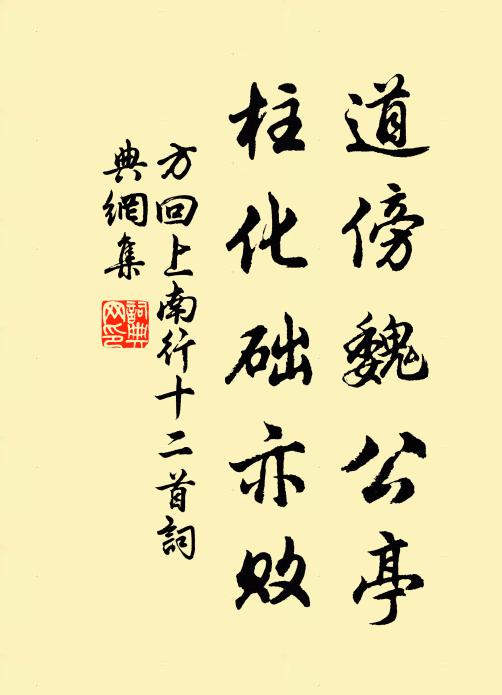 道傍魏公亭
柱化础亦败
方回上南行十二首詞
典網集
詞典
网印